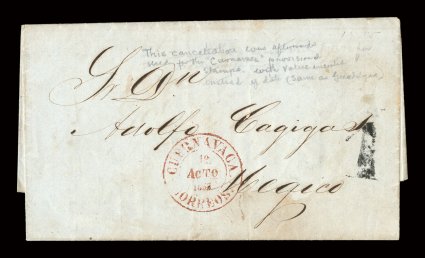 This cancellation was afterwards
used for the Cuernavaca provisional
stamps with value
instead of date (same as
Sr Dn
Adolfo Cagigas
CUERNAVACA
AGTO
CORREOS
Megico